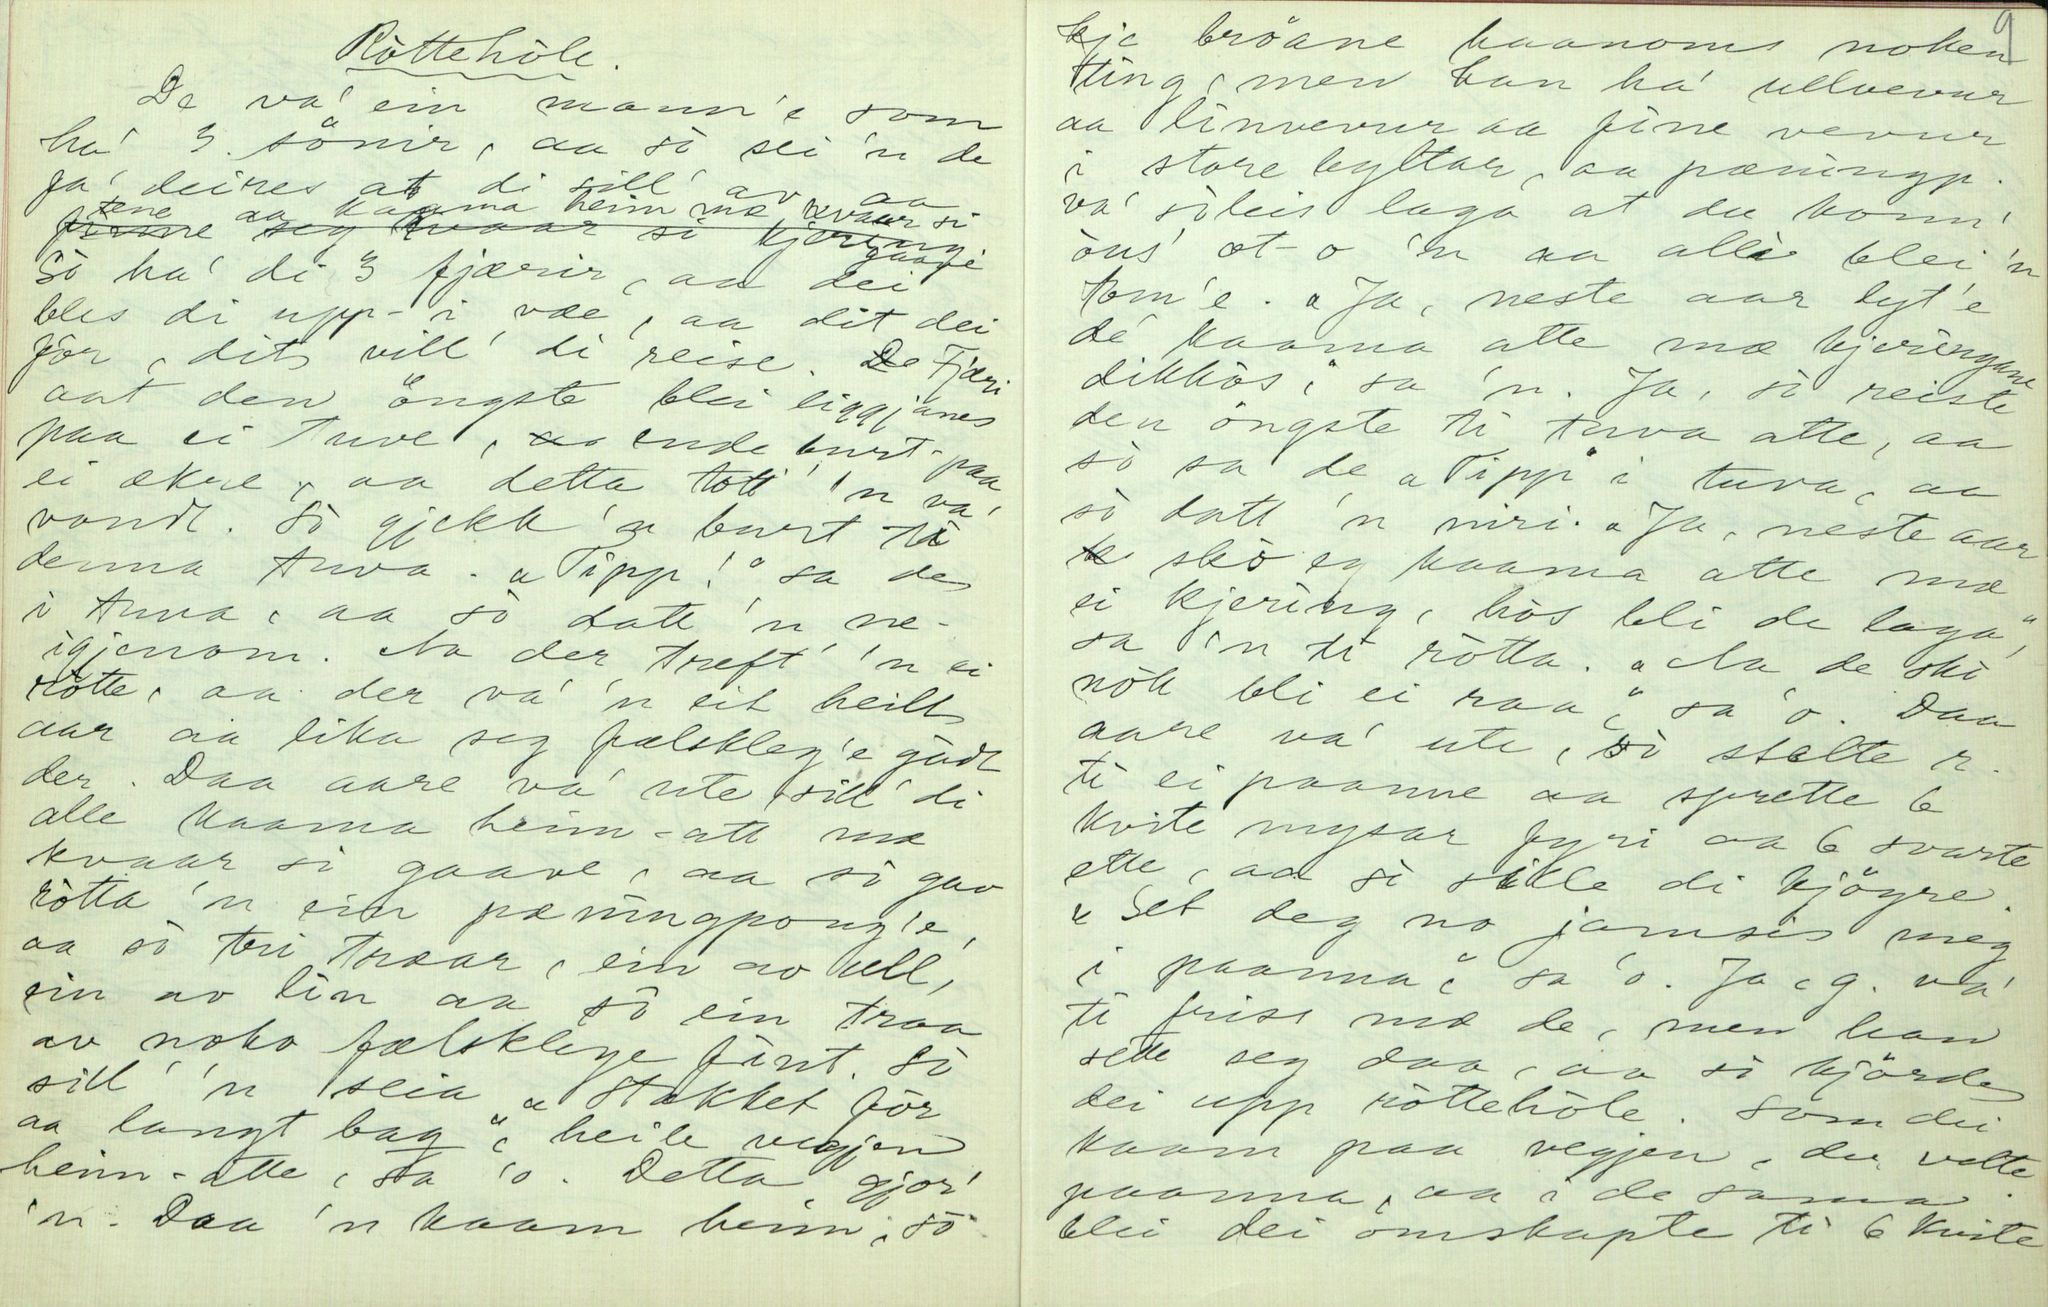 Ròttehòle.
De va' ein mann'e som
ha' 3 sönir, aa sò sei 'n de
fa' deires at di sill' av aa
tene aa kaama heim mæ kvaar si
finne seg kvaar si kjering
gaave
Sò ha' di 3 fjærir, aa dei
bles di upp-i væe, aa dit dei
fòr, dit vill' di reise. De Fjæri
aat den öngste blei liggjanes
paa ei tuve, aa ende burt-paa
ei ækre, aa detta tött' 'n va'
vondt. Sò gjekk 'n burt ti
denna tuva. „Tipp!“ sa de
i tuva, aa sò datt 'n ne-
igjenom. Na der treft' 'n ei
rötte, aa der va' 'n eit heilt
aar aa lika seg fælskleg'e godt
der. Daa aare va' ute, sill' di
alle kaama heim-att mæ
kvaar si gaave, aa sò gav
ròtta 'n ein pæningpong'e,
aa sò tri traar, ein av ull,
ein av lin aa sò ein traa
av noko fælsklege fint. Sò
sill' 'n seia „Stakket fòr
aa langt bag“, heile vegjen
heim-atte, sa 'o. Detta gjor'
'n. Daa 'n kaam heim, sò
9
kje bröane haanoms noken
ting, men han ha' ullvevur
aa linvevur aa fine vevur
i store byltar, aa pæningp.
va' sòleis laga at du konn'
òus' òt-o 'n aa alli blei 'n
tom'e. „Ja, neste aar lyt'e
de kaama atte mæ kjeringane
dikkòs,“ sa 'n. Ja, sò reiste
den öngste ti tuva atte, aa
sò sa de „Tipp“ i tuva, aa
sò datt 'n niri. „Ja, neste aar
skò eg kaama atte mæ
ei kjering, hòs bli de laga,“
sa 'n ti ròtta. „Na de skò
nòk bli ei raa,“ sa 'o. Daa
aare va' ute, sò stelte r.
ti ei paanne aa sprette 6
kvite mysar fyri aa 6 svarte
ette, aa sò sille di kjöyre.
„Set deg no jamsis meg
i paanna,“ sa 'o. Ja, g. va'
ti friss mæ de, men han
sette seg daa, aa sò kjörde
dei upp ròttehòle. Som dei
kaam paa vegjen, der velte
paanna, aa i de samma
blei dei òmskapte ti 6 kvite